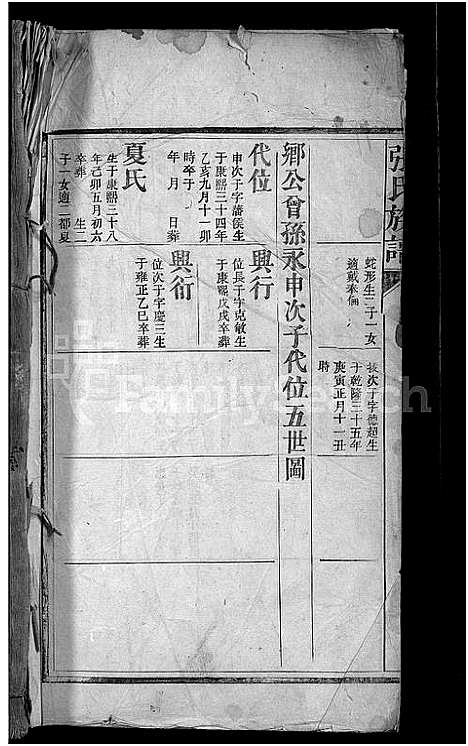 張氏族譜
蛇形生二子一女
適戴奉倫
次子字德超生
于乾隆三十五年
庚寅正月十一丑
時
鄉公曾孫永申次子代位五世圖
代位
申次子字藩侯生
于康熙三十四年
乙亥九月十一卯
時卒于
年 月 日葬
夏氏
生于康熙三十八
年己卯五月初六
卒葬 生二
子一女適二都夏
興行
位長子字克敏生
于康熙戊戌卒葬
興衍
位次子字慶三生
于雍正乙巳卒葬
FamilySearch